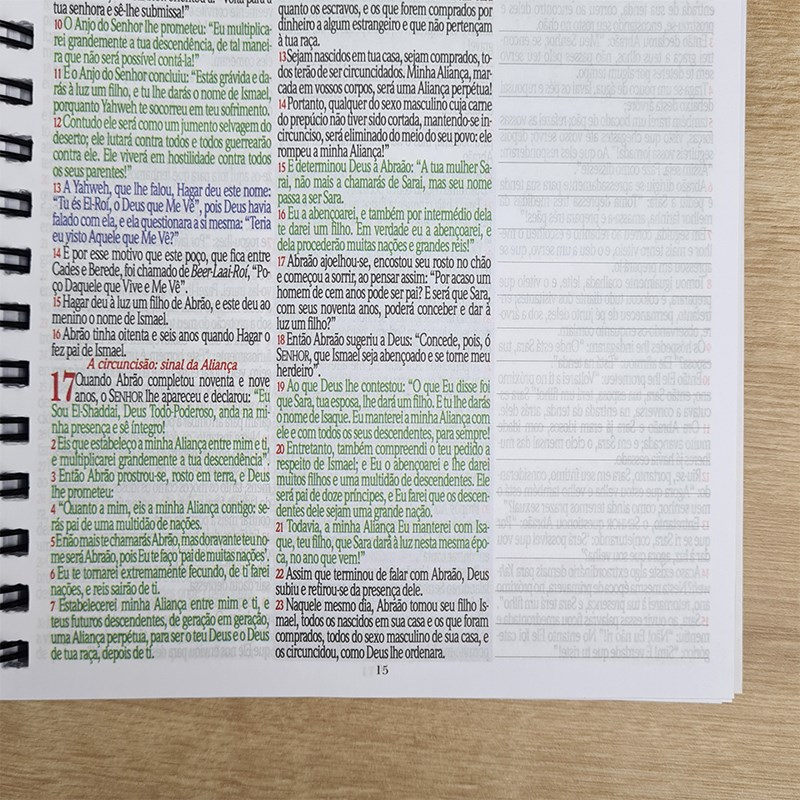 tua senhora e sê-lhe submissa!"
10 O Anjo do Senhor lhe prometeu: "Eu multiplica-
rei grandemente a tua descendência, de tal manei-
ra que não será possível contá-la!"
11 E o Anjo do Senhor concluiu: "Estás grávida e da-
rás à luz um filho, e tu lhe darás o nome de Ismael,
porquanto Yahweh te socorreu em teu sofrimento.
12 Contudo ele será como um jumento selvagem do
deserto; ele lutará contra todos e todos guerrearão
contra ele. Ele viverá em hostilidade contra todos
os seus parentes!"
13 A Yahweh, que lhe falou, Hagar deu este nome:
"Tu és El-Roí, o Deus que Me Vê", pois Deus havia
falado com ela, e ela questionara a si mesma: "Teria
eu visto Aquele que Me Vê?"
14 É por esse motivo que este poço, que fica entre
Cades e Berede, foi chamado de Beer-Laai-Roí, "Po-
ço Daquele que Vive e Me Vê".
15 Hagar deu à luz um filho de Abrão, e este deu ao
menino o nome de Ismael.
16 Abrão tinha oitenta e seis anos quando Hagar o
fez pai de Ismael.
A circuncisão: sinal da Aliança
17 Quando Abrão completou noventa e nove
anos, o SENHOR lhe apareceu e declarou: "Eu
Sou El-Shaddai, Deus Todo-Poderoso, anda na mi-
nha presença e sê íntegro!
2 Eis que estabeleço a minha Aliança entre mim e ti,
e multiplicarei grandemente a tua descendência".
3 Então Abrão prostrou-se, rosto em terra, e Deus
lhe prometeu:
4 "Quanto a mim, eis a minha Aliança contigo: se-
rás pai de uma multidão de nações.
5 E não mais te chamarás Abrão, mas doravante teu no-
me será Abraão, pois Eu te faço 'pai de muitas nações'.
6 Eu te tornarei extremamente fecundo, de ti farei
nações, e reis sairão de ti.
7 Estabelecerei minha Aliança entre mim e ti, e
teus futuros descendentes, de geração em geração,
uma Aliança perpétua, para ser o teu Deus e o Deus
de tua raça, depois de ti.
quanto os escravos, e os que forem comprados por
dinheiro a algum estrangeiro e que não pertençam
à tua raça.
13 Sejam nascidos em tua casa, sejam comprados, to-
dos terão de ser circuncidados. Minha Aliança, mar-
cada em vossos corpos, será uma Aliança perpétua!
14 Portanto, qualquer do sexo masculino cuja carne
do prepúcio não tiver sido cortada, mantendo-se in-
circunciso, será eliminado do meio do seu povo: ele
rompeu a minha Aliança!"
15 E determinou Deus à Abraão: "A tua mulher Sa-
rai, não mais a chamarás de Sarai, mas seu nome
passa a ser Sara.
16 Eu a abençoarei, e também por intermédio dela
te darei um filho. Em verdade eu a abençoarei, e
dela procederão muitas nações e grandes reis!"
17 Abraão ajoelhou-se, encostou seu rosto no chão
e começou a sorrir, ao pensar assim: "Por acaso um
homem de cem anos pode ser pai? E será que Sara,
com seus noventa anos, poderá conceber e dar à
luz um filho?"
18 Então Abraão sugeriu a Deus: "Concede, pois, ó
SENHOR, que Ismael seja abençoado e se torne meu
herdeiro".
19 Ao que Deus lhe contestou: "O que Eu disse foi
que Sara, tua esposa, lhe dará um filho. E tu lhe darás
o nome de Isaque. Eu manterei a minha Aliança com
ele e com todos os seus descendentes, para sempre!
20 Entretanto, também compreendi o teu pedido a
respeito de Ismael; e Eu o abençoarei e lhe darei
muitos filhos e uma multidão de descendentes. Ele
será pai de doze príncipes, e Eu farei que os descen-
dentes dele sejam uma grande nação.
21 Todavia, a minha Aliança Eu manterei com Isa-
que, teu filho, que Sara dará à luz nesta mesma épo-
ca, no ano que vem!"
22 Assim que terminou de falar com Abraão, Deus
subiu e retirou-se da presença dele.
23 Naquele mesmo dia, Abraão tomou seu filho Is-
mael, todos os nascidos em sua casa e os que foram
comprados, todos do sexo masculino de sua casa, e
os circuncidou, como Deus lhe ordenara.
15